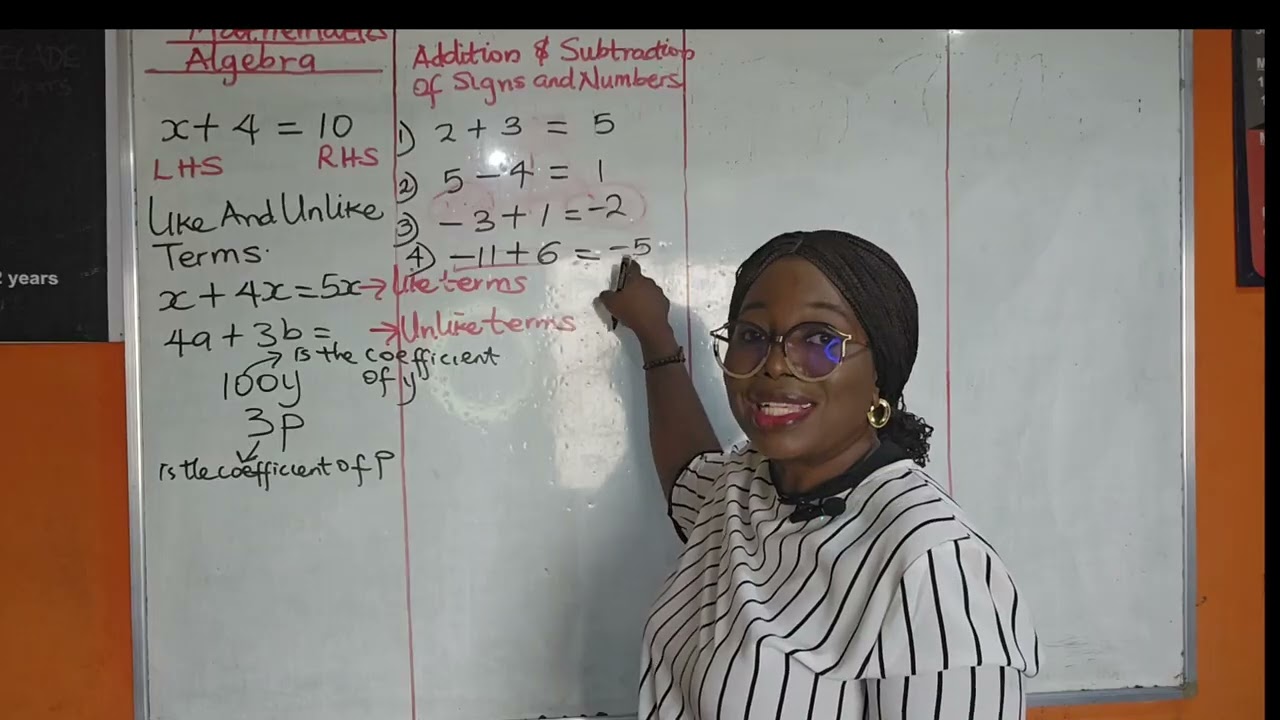 Mathematics
Algebra
x + 4 = 10
LHS RHS
Like And Unlike
Terms.
x + 4x = 5x → like terms
4a + 3b = → Unlike terms
is the coefficient
100y of y
3p
is the coefficient of P
Addition & Subtraction
Of Signs and Numbers
1) 2 + 3 = 5
2) 5 - 4 = 1
3) - 3 + 1 = -2
4) -11 + 6 = -5
years